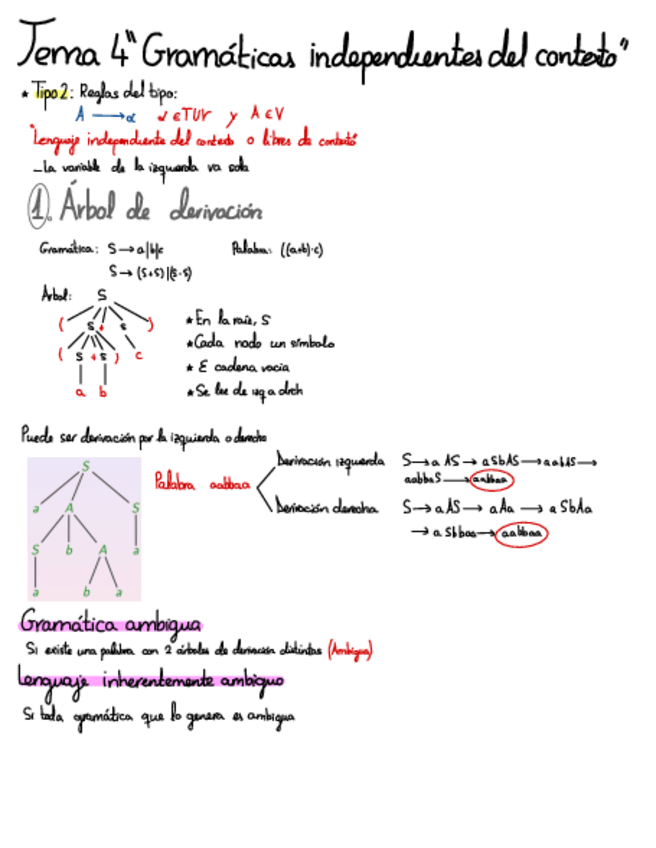 Tema 4 "Gramáticas independientes del contexto"
★ Tipo 2: Reglas del tipo:
A → α α ∈ TUV y A ∈ V
"Lenguaje independiente del contexto o libres de contexto"
- La variable de la izquierda va sola
1. Árbol de derivación
Gramática: S → a|b|c Palabra: ((a+b)·c)
S → (S+S)|(S·S)
Árbol: S
( S + S )
( S + S ) c
a b
★ En la raíz, S
★ Cada nodo un símbolo
★ E cadena vacía
★ Se lee de izq a drch
Puede ser derivación por la izquierda o derecha
S
a A S
S b A a
a b a
Palabra aabbaa
Derivación izquierda S → a AS → aSbAS → aabAS →
aabbaS → aabbaa
Derivación derecha S → aAS → aAa → a SbAa
→ a Sbbaa → aabbaa
Gramática ambigua
Si existe una palabra con 2 árboles de derivación distintos (Ambigua)
Lenguaje inherentemente ambiguo
Si toda gramática que lo genera es ambigua